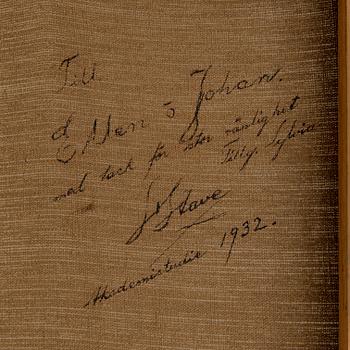 Till
Ellen o Johan.
med tack för stor vänlighet
Tilly. Sylvia
Stave
Akademistudie 1932.